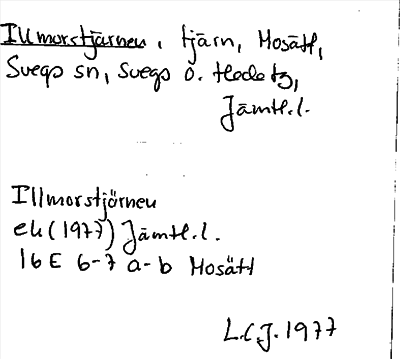 Illmorstjärnen, tjärn, Mosätt,
Svegs sn, Svegs o. Hede tg,
Jämtl.l.
Illmorstjärnen
ek (1977) Jämtl.l.
16E 6-7 a-b Mosätt
L.C.J. 1977